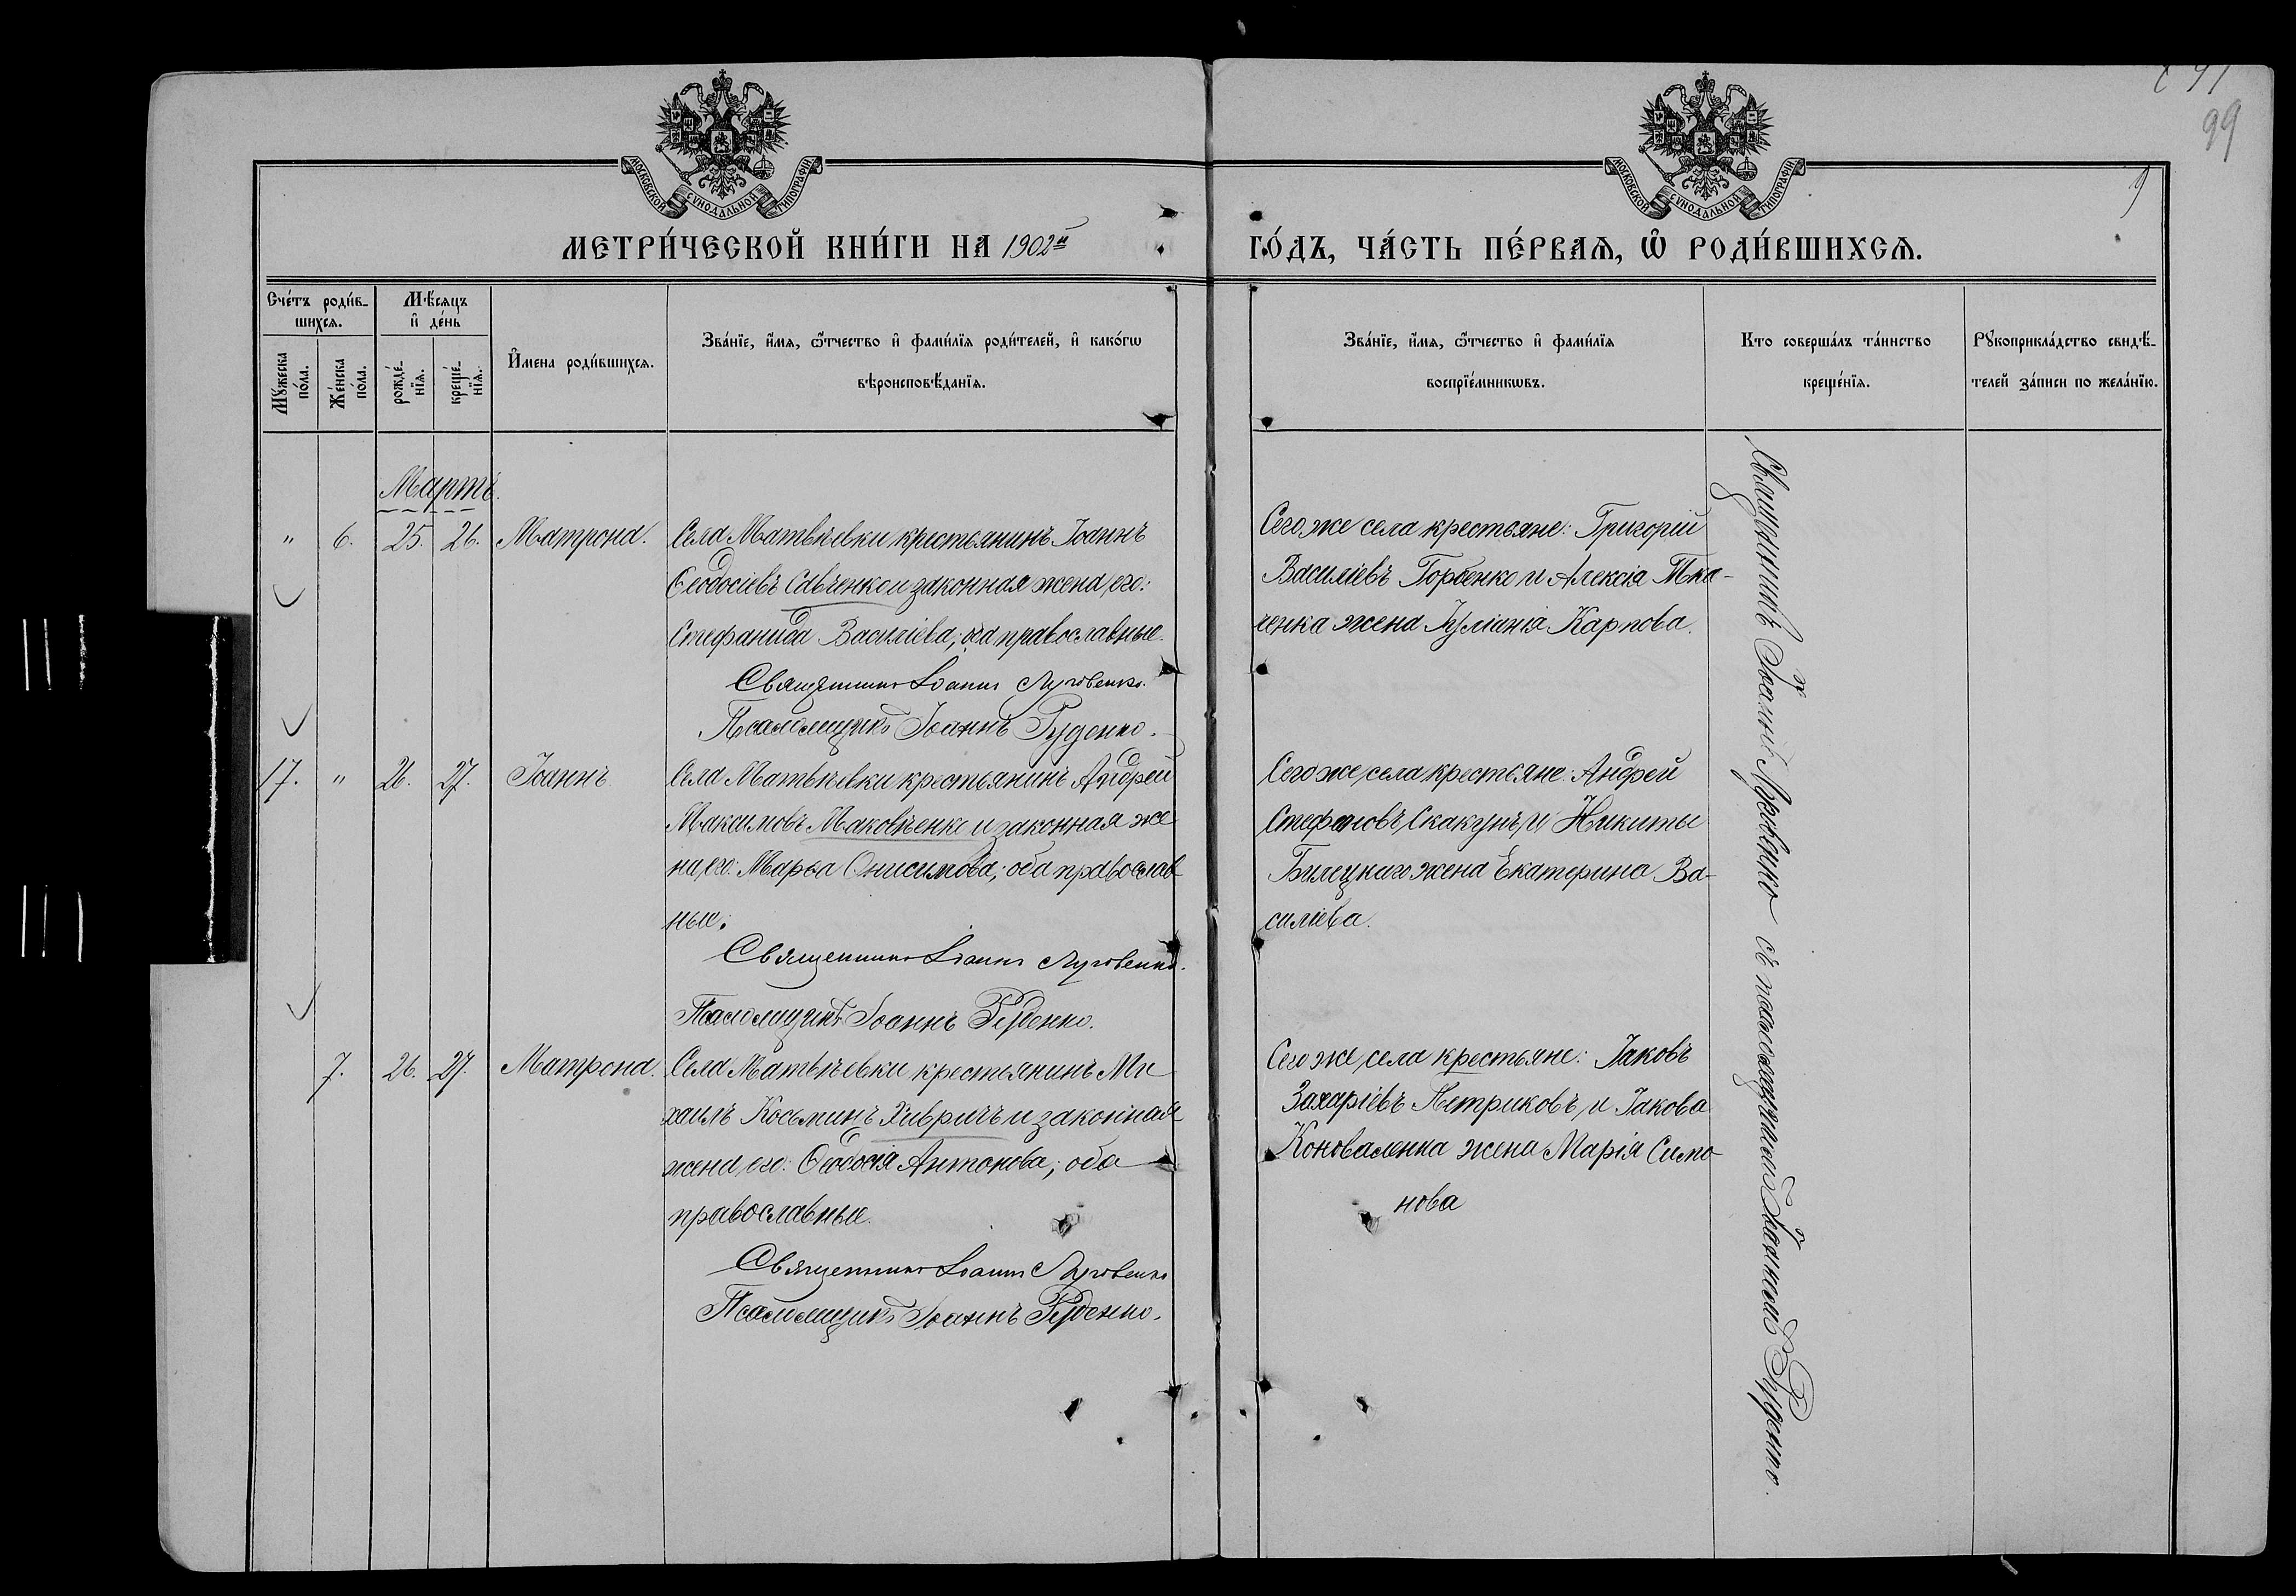 99
9
МОСКОВСКОЙ СѴНОДАЛЬНОЙ ТИПОГРАФІИ
МОСКОВСКОЙ СѴНОДАЛЬНОЙ ТИПОГРАФІИ
МЕТРИ́ЧЕСКОЙ КНИ́ГИ НА 1902й
ГО́ДЪ, ЧА́СТЬ ПЕ́РВАѦ, Ѡ҆ РОДИ́ВШИХСѦ.
Сче́тъ роди́в-
шихсѧ.
Мꙋ́жеска по́ла.
Же́нска по́ла.
Мѣ́сѧцъ
и҆ де́нь
рожде́-
нїѧ.
креще́-
нїѧ.
И҆мена роди́вшихсѧ.
Зва́нїе, и҆́мѧ, ѻ҆́тчество и҆ фами́лїѧ роди́телей, и҆ како́гѡ
вѣроисповѣ́данїѧ.
Зва́нїе, и҆́мѧ, ѻ҆́тчество и҆ фами́лїѧ
воспрїе́мникѡвъ.
Кто соверша́лъ та́инство
креще́нїѧ.
Рꙋкоприкла́дство свидѣ́-
телей за́писи по жела́нїю.
Мартъ.
" 6. 25. 26. Матрона.
Села Матвѣевки крестьянинъ Іоаннъ
Ѳеодосіевъ Савченко и законная жена его:
Стефанида Василіева; оба православные.
Священникъ Іоаннъ Луговенко.
Псаломщикъ Іоаннъ Руденко.
Сего же села крестьяне: Григорій
Василіевъ Горбенко и Алексія Тка-
ченка жена Іуліанія Карпова.
17. " 26. 27. Іоаннъ.
Села Матвѣевки крестьянинъ Андрей
Максимовъ Маковѣенко и законная же
на его: Марѳа Онисимова; оба православ
ные.
Священникъ Іоаннъ Луговенко.
Псаломщикъ Іоаннъ Руденко.
Сего же села крестьяне: Андрей
Стефановъ Скакунъ и Никиты
Билецкаго жена Екатерина Ва-
силіева.
7. 26. 27. Матрона.
Села Матвѣевки крестьянинъ Ми
хаилъ Косьминъ Хивричъ и законная
жена его: Ѳеодосія Антонова; оба
православные.
Священникъ Іоаннъ Луговенко
Псаломщикъ Іоаннъ Руденко.
Сего же села крестьяне: Іаковъ
Захаріевъ Петриковъ и Іакова
Коноваленка жена Марія Симо
нова
Священникъ Іоаннъ Луговенко съ псаломщикомъ Іоанномъ Руденко.